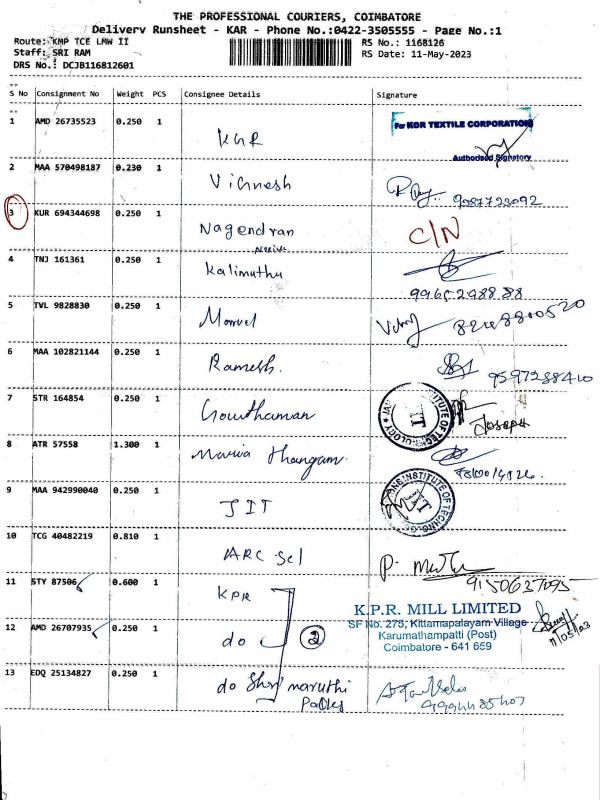 THE PROFESSIONAL COURIERS, COIMBATORE
Delivery Runsheet - KAR - Phone No.:0422-3505555 - Page No.:1
Route: KMP TCE LMW II
RS No.: 1168126
Staff: SRI RAM
RS Date: 11-May-2023
DRS No.: DCJB116812601
S No Consignment No Weight PCS Consignee Details Signature
1 AMD 26735523 0.250 1 KGR
For KOR TEXTILE CORPORATION
Authorised Signatory
2 MAA 570498187 0.230 1 Vignesh
9087723092
3 KUR 694344698 0.250 1 Nagendran C/N
4 TNJ 161361 0.250 1 Kalimuthu
9965298888
5 TVL 9828830 0.250 1
8208800520
6 MAA 102821144 0.250 1 Ramesh.
9597288410
7 STR 164854 0.250 1 Gowthaman
INSTITUTE OF TECHNOLOGY
Joseph
8 ATR 57558 1.300 1 Mariya thangam.
9 MAA 942990040 0.250 1 JIT
INSTITUTE OF TECHNOLOGY
10 TCG 40482219 0.810 1 ARC Scl
9150637095
11 STY 87506 0.600 1 KPR
K.P.R. MILL LIMITED
SF No. 273, Kittampalayam Village
Karumathampatti (Post)
Coimbatore - 641 659
11/05/23
12 AMD 26707935 0.250 1 do 2
13 EDQ 25134827 0.250 1 do Shri maruthi